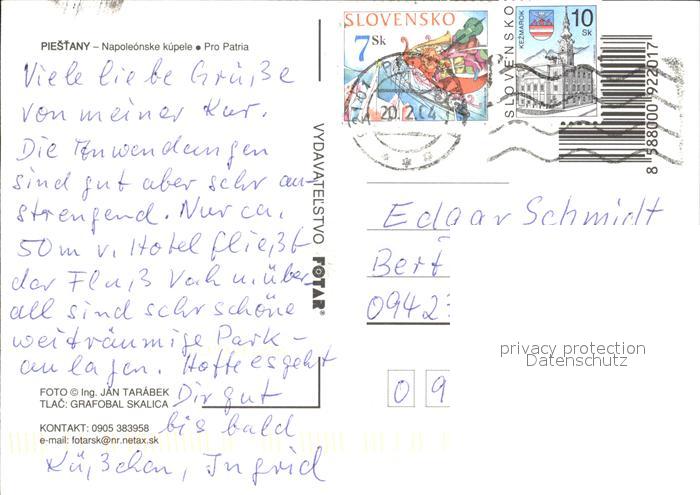 PIEŠŤANY – Napoleónske kúpele • Pro Patria
Viele liebe Grüße
von meiner Kur.
Die Anwendungen
sind gut aber sehr an-
strengend. Nur ca.
50 m v. Hotel fließt
der Fluß Vah u. über-
all sind sehr schöne
weiträumige Park-
anlagen. Hoffe es geht
Dir gut
bis bald
Küßchen, Ingrid
FOTO © Ing. JÁN TARÁBEK
TLAČ: GRAFOBAL SKALICA
KONTAKT: 0905 383958
e-mail: fotarsk@nr.netax.sk
VYDAVATEĽSTVO FOTAR®
SLOVENSKO
7 Sk
20.2.04
SLOVENSKO
KEŽMAROK
10
Sk
8 588000 922017
Edgar Schmidt
Bert
0942
09
privacy protection
Datenschutz